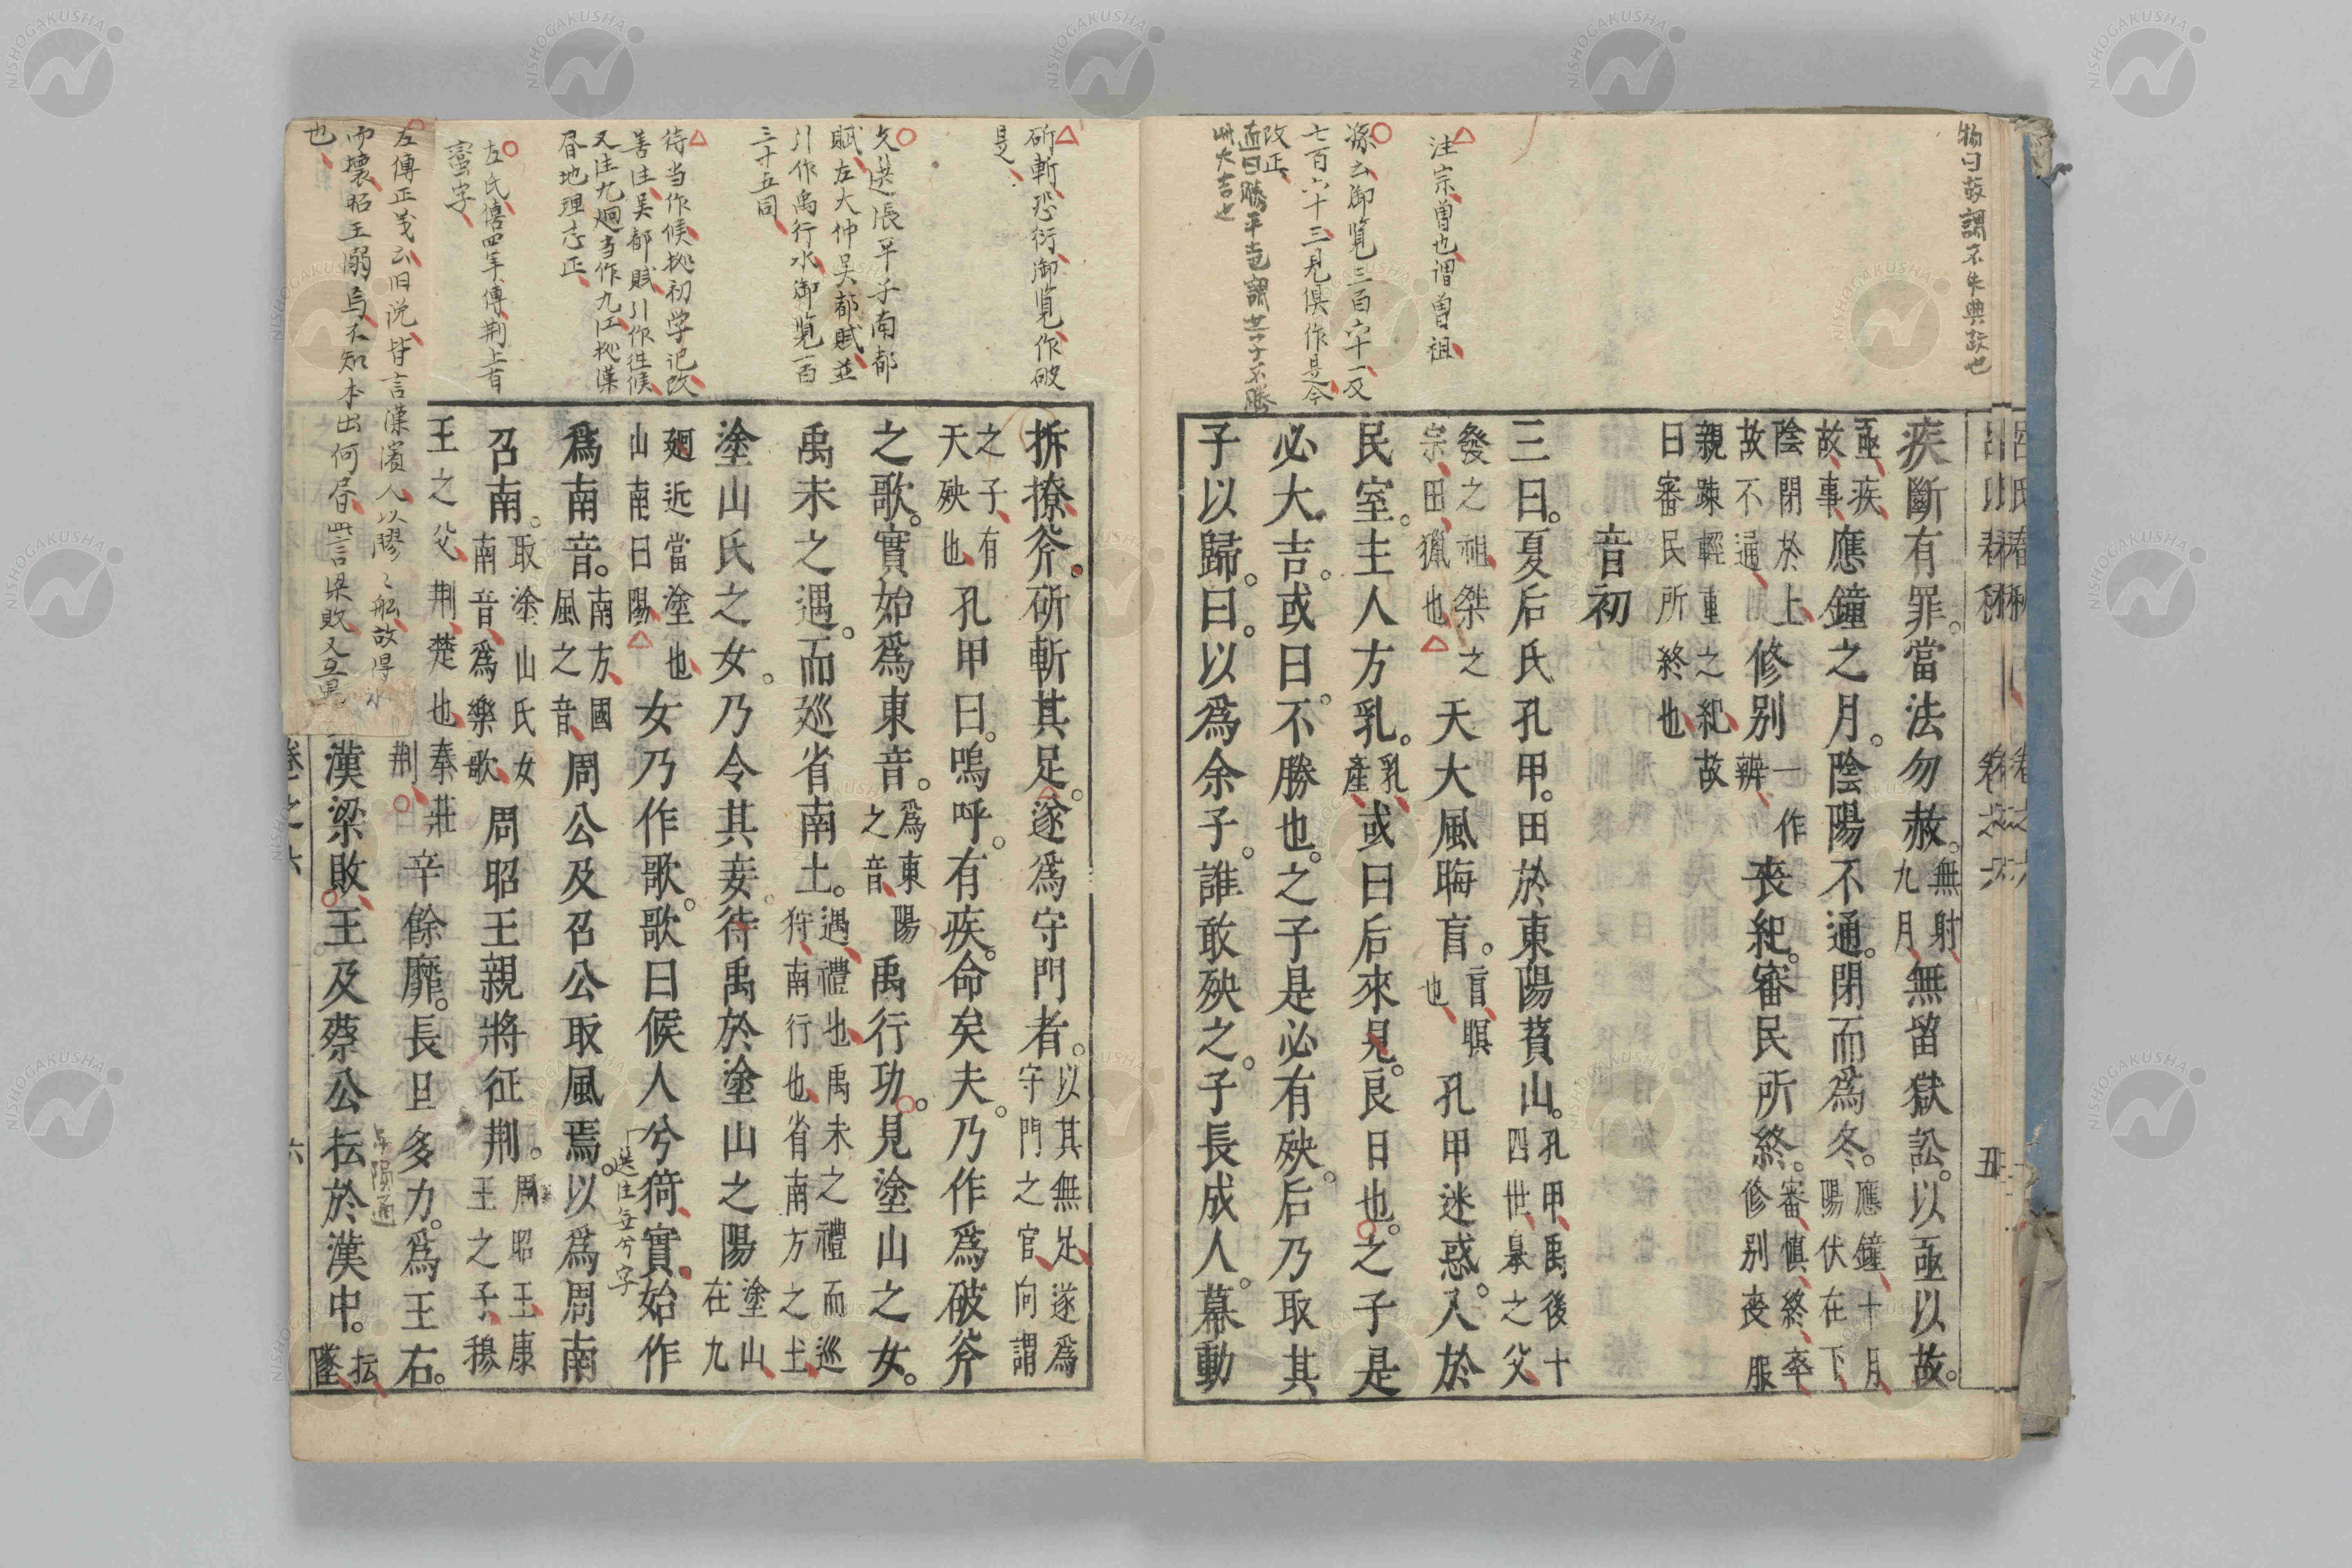 物曰故謂不失典故也
疾斷有罪當法勿赦無射九月無留獄訟以亟以故
亟疾故事應鐘之月陰陽不通閉而爲冬應鐘十月陽伏在下
陰閉於上故不通修別一作辨喪紀審民所終審慎終卒修別喪服
親疎輕重之紀故曰審民所終也
音初
三曰夏后氏孔甲田於東陽萯山孔甲禹後十四世臯之父
發之祖桀之宗田獵也天大風晦盲盲暝也孔甲迷惑入於
民室主人方乳乳產或曰后來見良日也之子是
必大吉或曰不勝也之子是必有殃后乃取其
子以歸曰以爲余子誰敢殃之子長成人幕動
注宗曽也謂曽祖
孫云御覧三百六十一又
七百六十三見俱作是今
改正
拆撩斧斫斬其足遂爲守門者以其無足遂爲守門之官向謂
之子有天殃也孔甲曰嗚呼有疾命矣夫乃作爲破斧
之歌實始爲東音爲東陽之音禹行功見塗山之女
禹未之遇而巡省南土遇禮也禹未之禮而巡狩南行也省南方之土
塗山氏之女乃令其妾待禹於塗山之陽塗山在九
廻近當塗也山南曰陽女乃作歌歌曰候人兮猗實始作
爲南音南方國風之音周公及召公取風焉以爲周南
召南取塗山氏女南音爲樂歌周昭王親將征荆周昭王康王之子穆
王之父荆楚也秦莊荆辛餘靡長且多力爲王右
漢梁敗王及蔡公抎於漢中抎墜
卷之六
六
斫斬恐衍御覧作破
是
文選張平子南都
賦左大仲吳都賦並
引作禹行水御覧一百
三十五同
待当作候拠初学記改
善注吳都賦引作往候
又注九廻当作九江拠漢
昏地理志正
左氏僖四年傳荆上有
蛮字
左傳正義云旧説皆言漢濱人以膠々舩故得水
而壊昭王溺焉不知本出何昏
也
選注無兮字